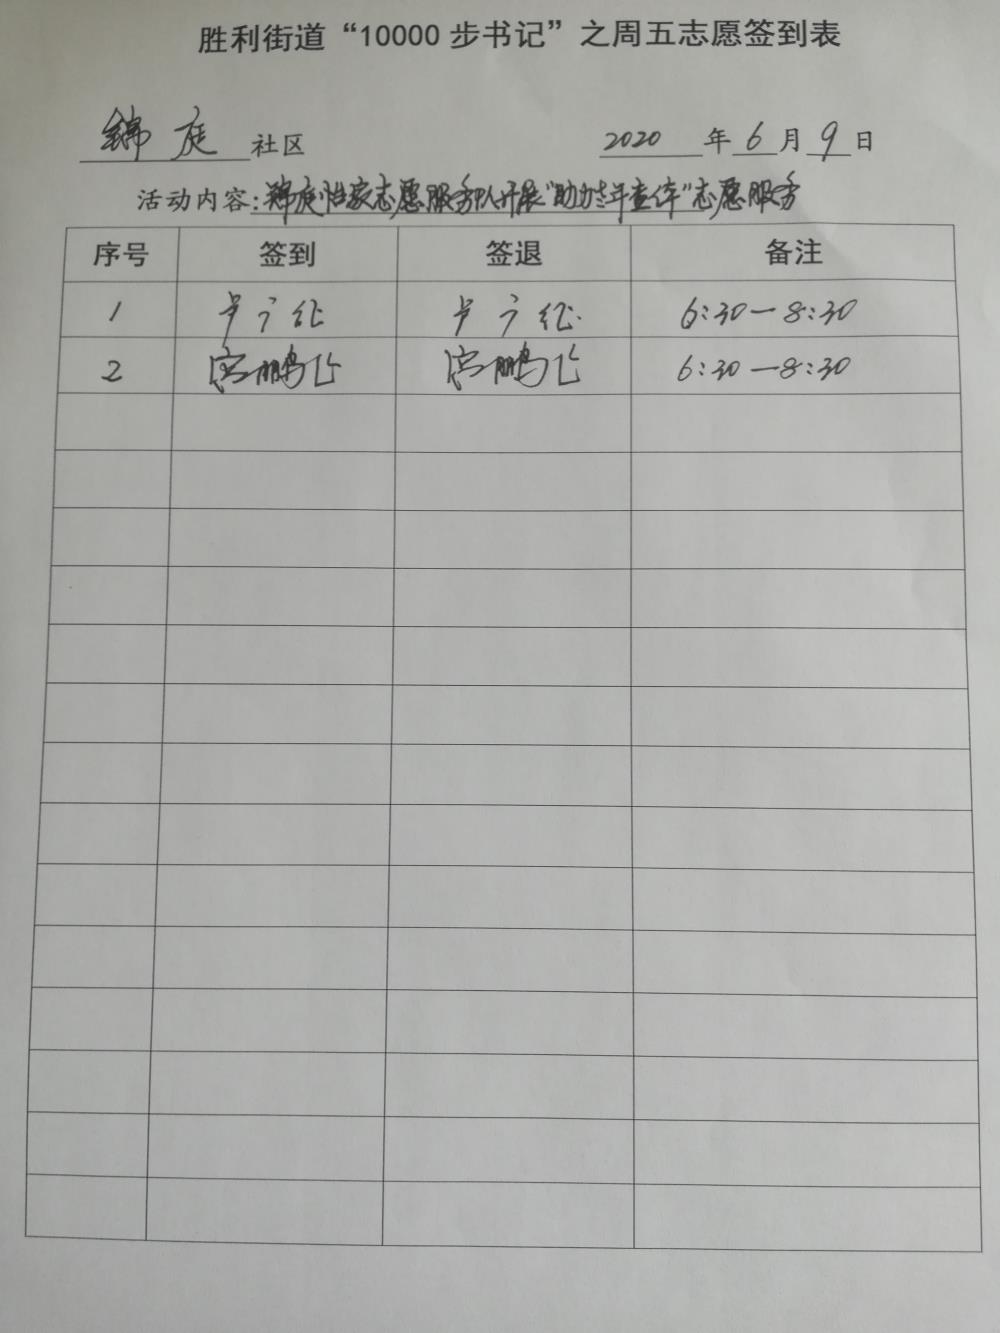 胜利街道“10000步书记”之周五志愿签到表
锦庭社区 2020年6月9日
活动内容:锦庭怡家志愿服务队开展“助力老年查体”志愿服务
序号 签到 签退 备注
1 6:30—8:30
2 鹏飞 鹏飞 6:30—8:30